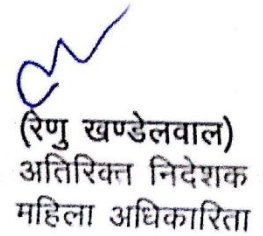 (रेणु खण्डेलवाल)
अतिरिक्त निदेशक
महिला अधिकारिता